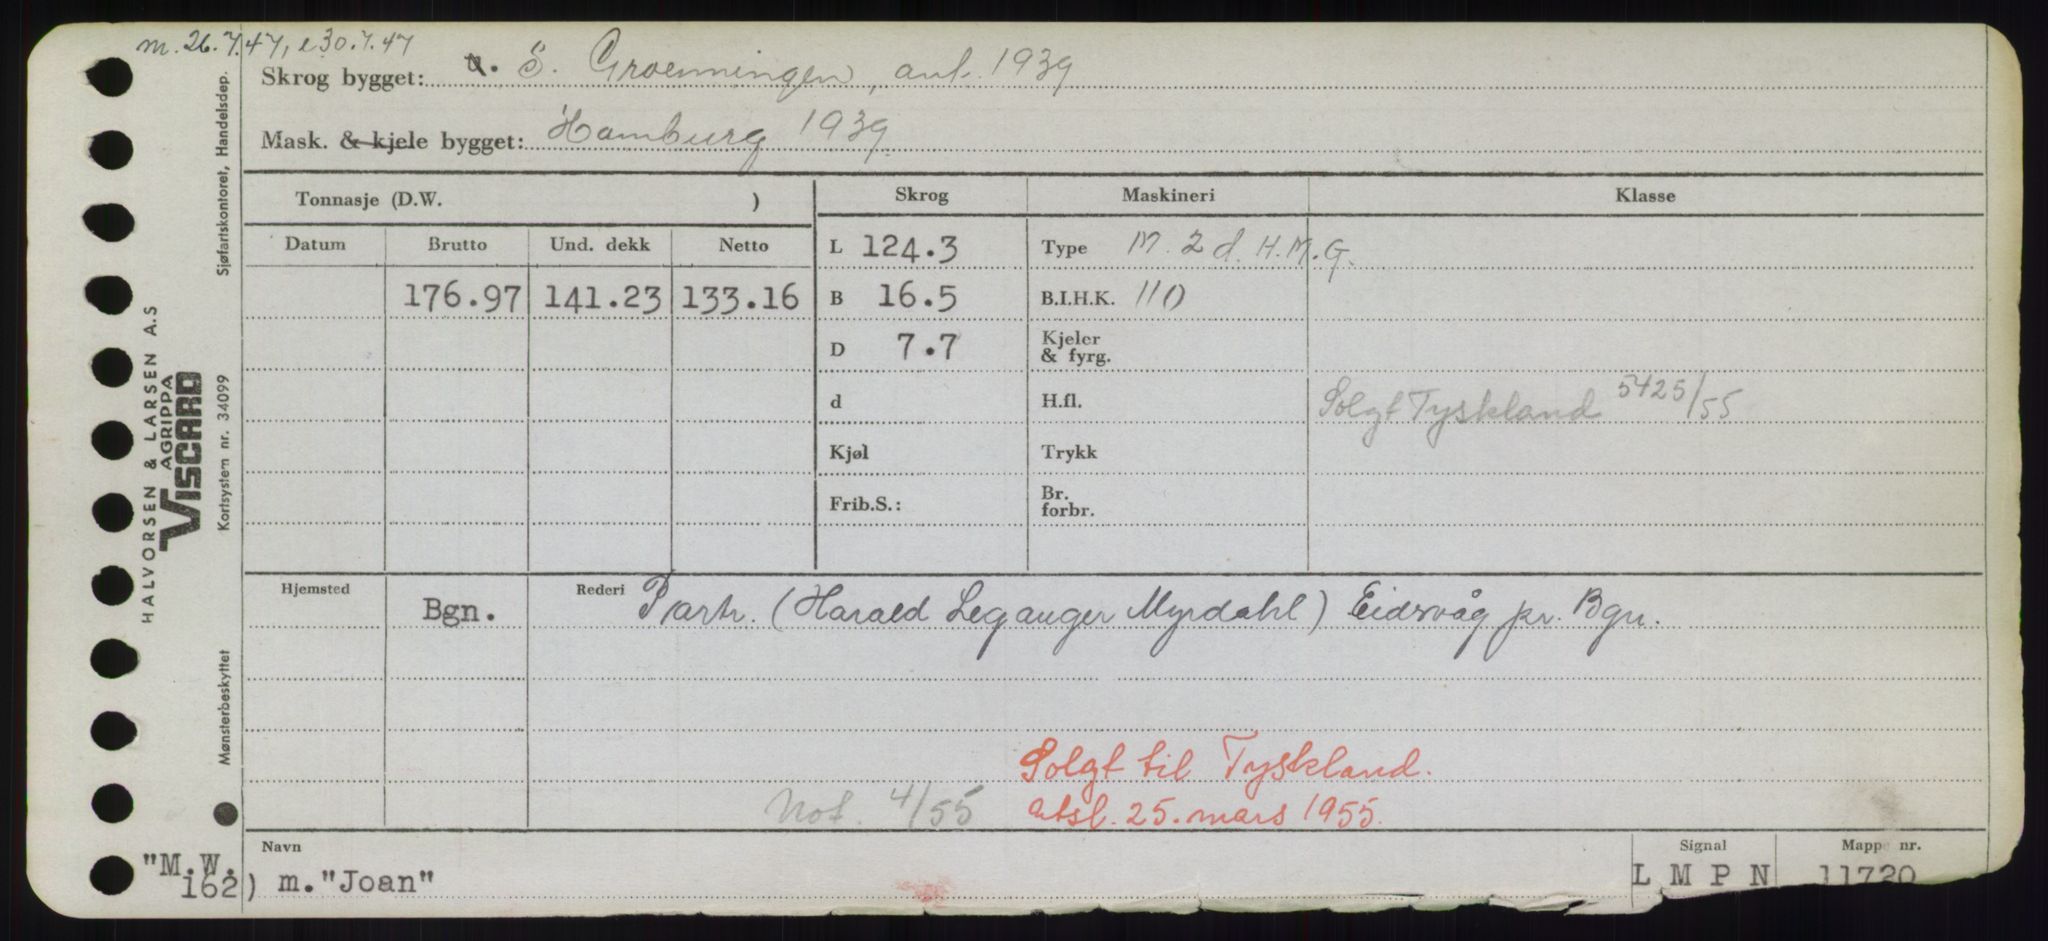 m. 26.7.47, e 30.7.47
Skrog bygget: S. Groenningen, ant. 1939
Mask. & kjele bygget: Hamburg 1939
Tonnasje (D.W. ) Skrog Maskineri Klasse
Datum Brutto Und. dekk Netto L 124.3 Type M. 2 d. H.M.G.
176.97 141.23 133.16 B 16.5 B.I.H.K. 110
D 7.7 Kjeler & fyrg.
d H.fl. Solgt Tyskland 5425/55
Kjøl Trykk
Frib.S.: Br. forbr.
Hjemsted Bgn. Rederi Partr. (Harald Leganger Myrdahl) Eidsvåg pr. Bgn.
Solgt til Tyskland.
Not. 4/55 utsl. 25. mars 1955.
Navn Signal Mappe nr.
"M.W. 162) m. "Joan" L M P N 11720
Sjøfartskontoret, Handelsdep.
HALVORSEN & LARSEN A.S
AGRIPPA
VISCARD
Kortsystem nr. 34099
Mønsterbeskyttet